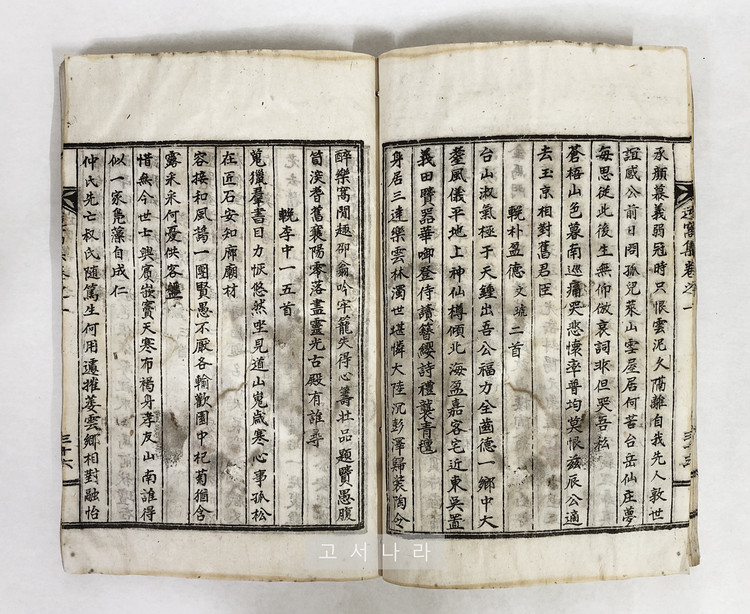 承顔慕義弱冠時只恨雲泥久隔離自我先人敦世
誼感公前日問孤兒萊山堊屋居何苦台岳仙庄夢
每思從此後生無仰倣哀詞非但哭吾私
蒼梧山色暮南巡痛哭悲懷率普均莫恨玆辰公適
去玉京相對舊君臣
輓朴盈德文琥二首
台山淑氣極于天鍾出吾公福力全齒德一鄕中大
耋風儀平地上神仙樽傾北海盈嘉客宅近東吳置
義田賸器華卿登侍讀簪纓詩禮襲靑氊
身居三達樂雲林濁世堪憐大陸沉彭澤歸装陶令
醉樂窩閒趣邵翁吟牢籠失得心籌壯品題賸愚腹
笥淡耆舊襄陽零落盡靈光古殿有誰尋
輓李中一五首
蒐獵羣書目力恢悠然坐見道山嵬歲寒心事孤松
在匠石安知廊廟材
容接和風藹一團賢愚不厭各輸歡園中杞菊猶含
露采采何憂供客盤
惜無今世士興賓嵌竇天寒布褐身孝友山南誰得
似一家鳧藻自成仁
仲氏先亡叔氏隨篤生何用遽摧萎雲鄕相對融怡
三十六
고서나라